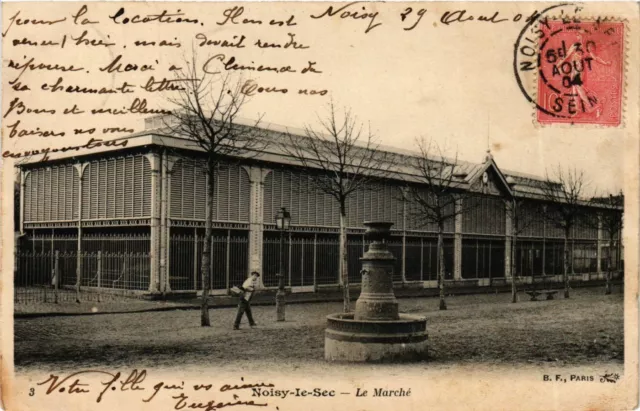 Noisy 29 Aout 04
pour la location. Il en est
venu hier, mais devait rendre
réponse. Merci a Clemence de
sa charmante lettre.
Bons et meilleurs
baisers nous vous
NOISY-LE-SEC
6d 30
AOUT
04
SEINE
3 Noisy-le-Sec - Le Marché
B. F., PARIS
Votre fille qui vous aime
Eugénie